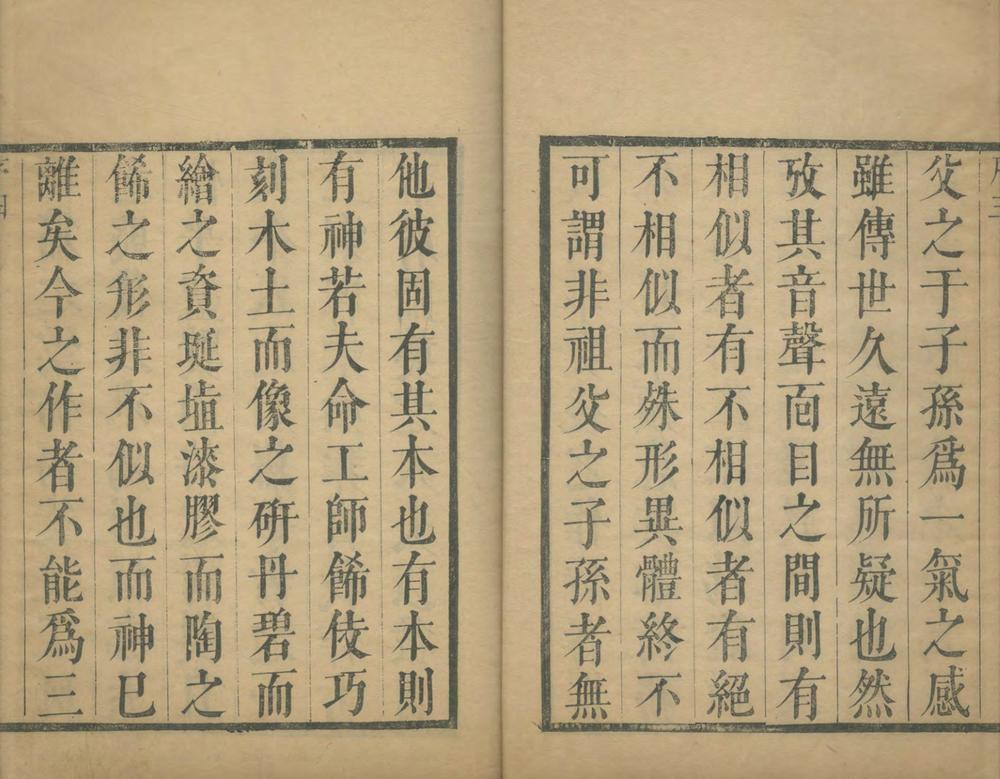 父之于子孫爲一氣之感
雖傳世久遠無所疑也然
攷其音聲面目之間則有
相似者有不相似者有絕
不相似而殊形異體終不
可謂非祖父之子孫者無
他彼固有其本也有本則
有神若夫命工師餙伎巧
刻木土而像之硏丹碧而
繪之資埏埴漆膠而陶之
餙之形非不似也而神已
離矣今之作者不能爲三